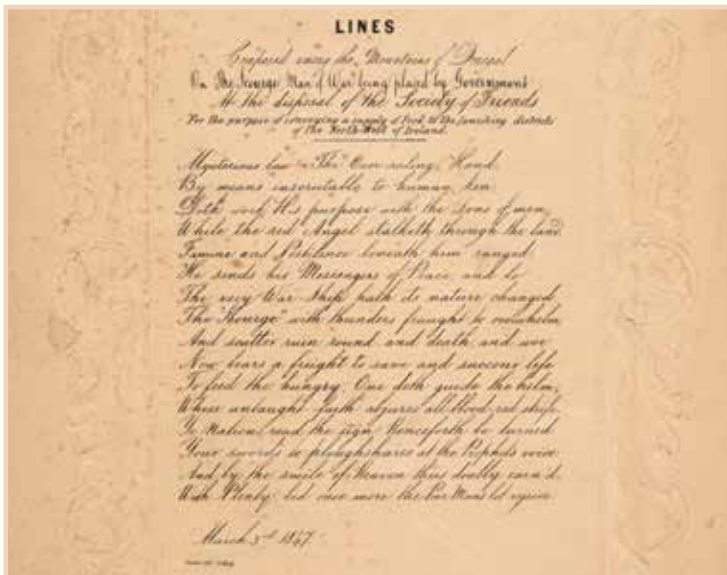 LINES
Composed among the Mountains of Donegal
On The Scourge Man of War being placed by Government
At the disposal of the Society of Friends
For the purpose of conveying a supply of food to the famishing districts
of the North-West of Ireland.
Mysterious law "The" Over ruling Hand
By means inscrutable to human ken
Doth work His purpose with the sons of men,
While the red Angel stalketh through the land
Famine and Pestilence beneath him ranged
He sends his Messengers of Peace and lo
The very War Ship hath its nature changed
The "Scourge" with thunders fraught to overwhelm
And scatter ruin round and death and woe
Now bears a freight to save and succour life
To feed the hungry. One doth guide the helm,
Whose untaught faith abjures all blood-red strife
Ye Nations read the sign Henceforth be turned
Your swords to ploughshares at the Prophets voice
And by the smile of Heaven thus doubly earn'd
With Plenty bid once more the Poor Mans lot rejoice
March 3rd 1847.